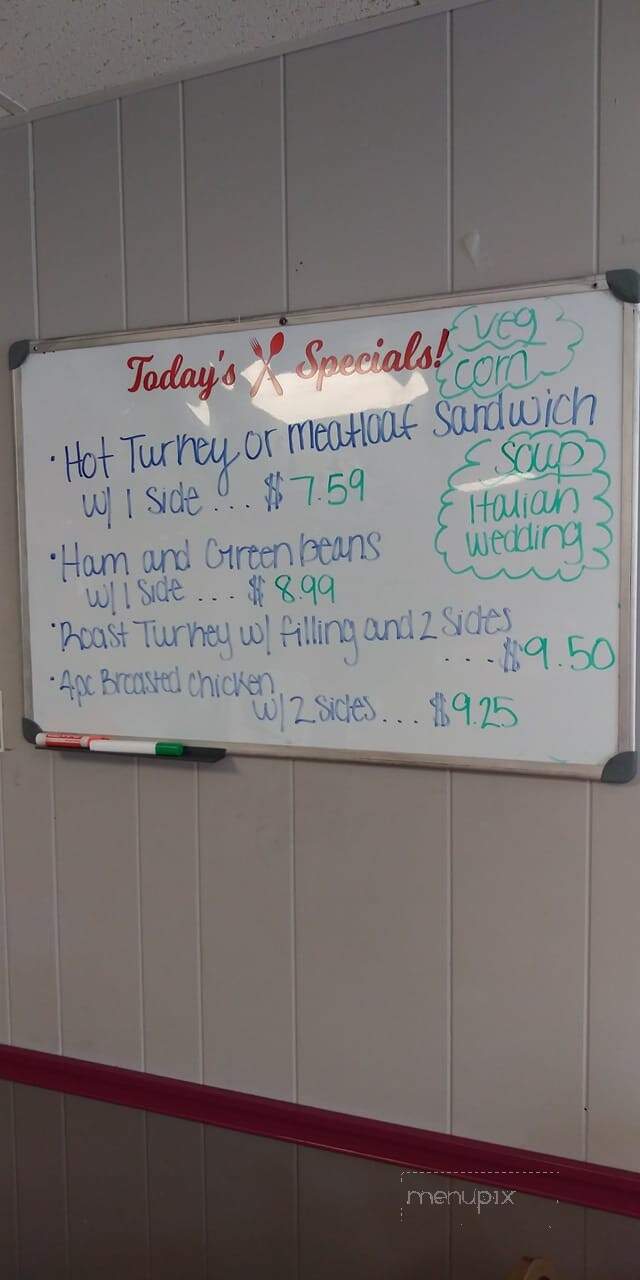 Today's Specials!
veg
corn
• Hot Turkey or meatloaf Sandwich
w/ 1 Side ... $7.59
soup
Italian
wedding
• Ham and Green beans
w/ 1 Side ... $8.99
• Roast Turkey w/ filling and 2 Sides
... $9.50
• 4pc Broasted chicken
w/ 2 Sides... $9.25
menupix